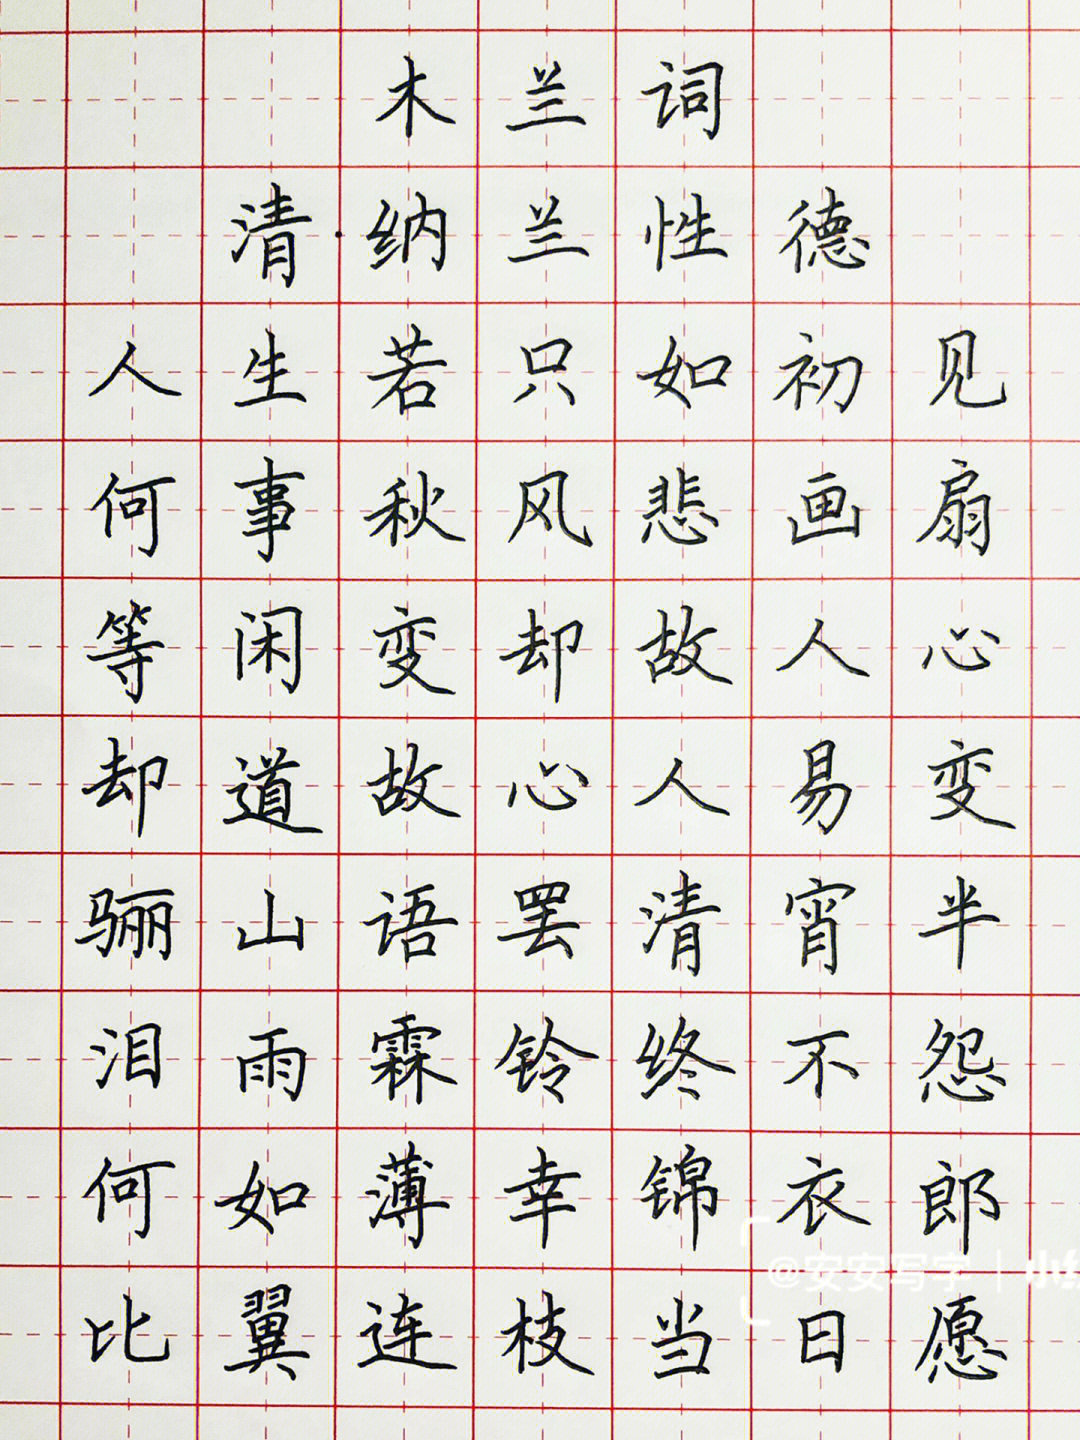 木兰词
清·纳兰性德
人生若只如初见
何事秋风悲画扇
等闲变却故人心
却道故心人易变
骊山语罢清宵半
泪雨霖铃终不怨
何如薄幸锦衣郎
比翼连枝当日愿
@安安写字